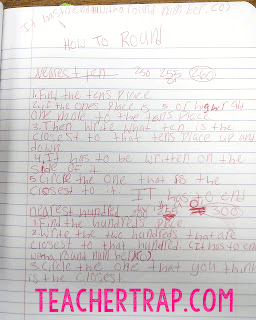 It has to end with a round number. (0)
HOW TO ROUND
Nearest ten 250 255 260
1. Find the tens place
2. if the ones place is 5 or higher add
one more to the tens place
3. Then write what ten is the
closest to that tens place up and
down
4. It has to be written on the
side of it
5. Circle the one that is the
closest to it. IT has to end
nearest hundred 300
1. Find the hundreds place
2. Write the two hundreds that are
closest to that hundred. (It has to end
with a round number (0)
3. Circle the one that you think
is the closest
TEACHERTRAP.COM